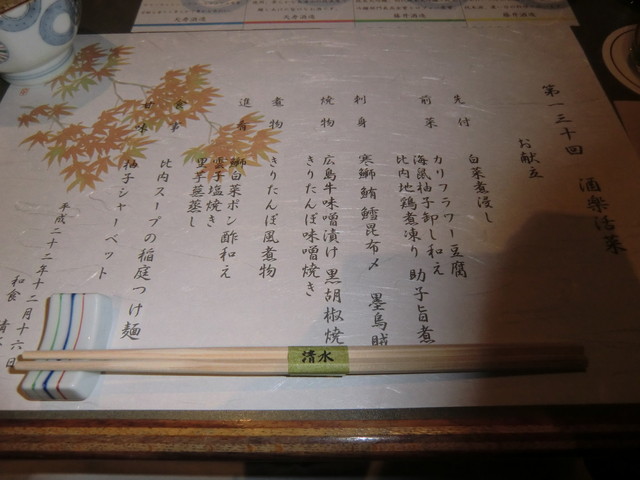 第一三十回 酒楽活菜
お献立
先付 白菜煮浸し
カリフラワー豆腐
前菜 海鼠柚子卸し和え
比内地鶏煮凍り 助子旨煮
刺身 寒鰤 鮪 鱈昆布〆 墨烏賊
焼物 広島牛味噌漬け 黒胡椒焼
きりたんぽ味噌焼き
煮物 きりたんぽ風煮物
進肴 鰤白菜ポン酢和え
雲子塩焼き
里芋蕪蒸し
食事 比内スープの稲庭つけ麺
甘味 柚子シャーベット
平成二十二年十二月十六日
和食
清水